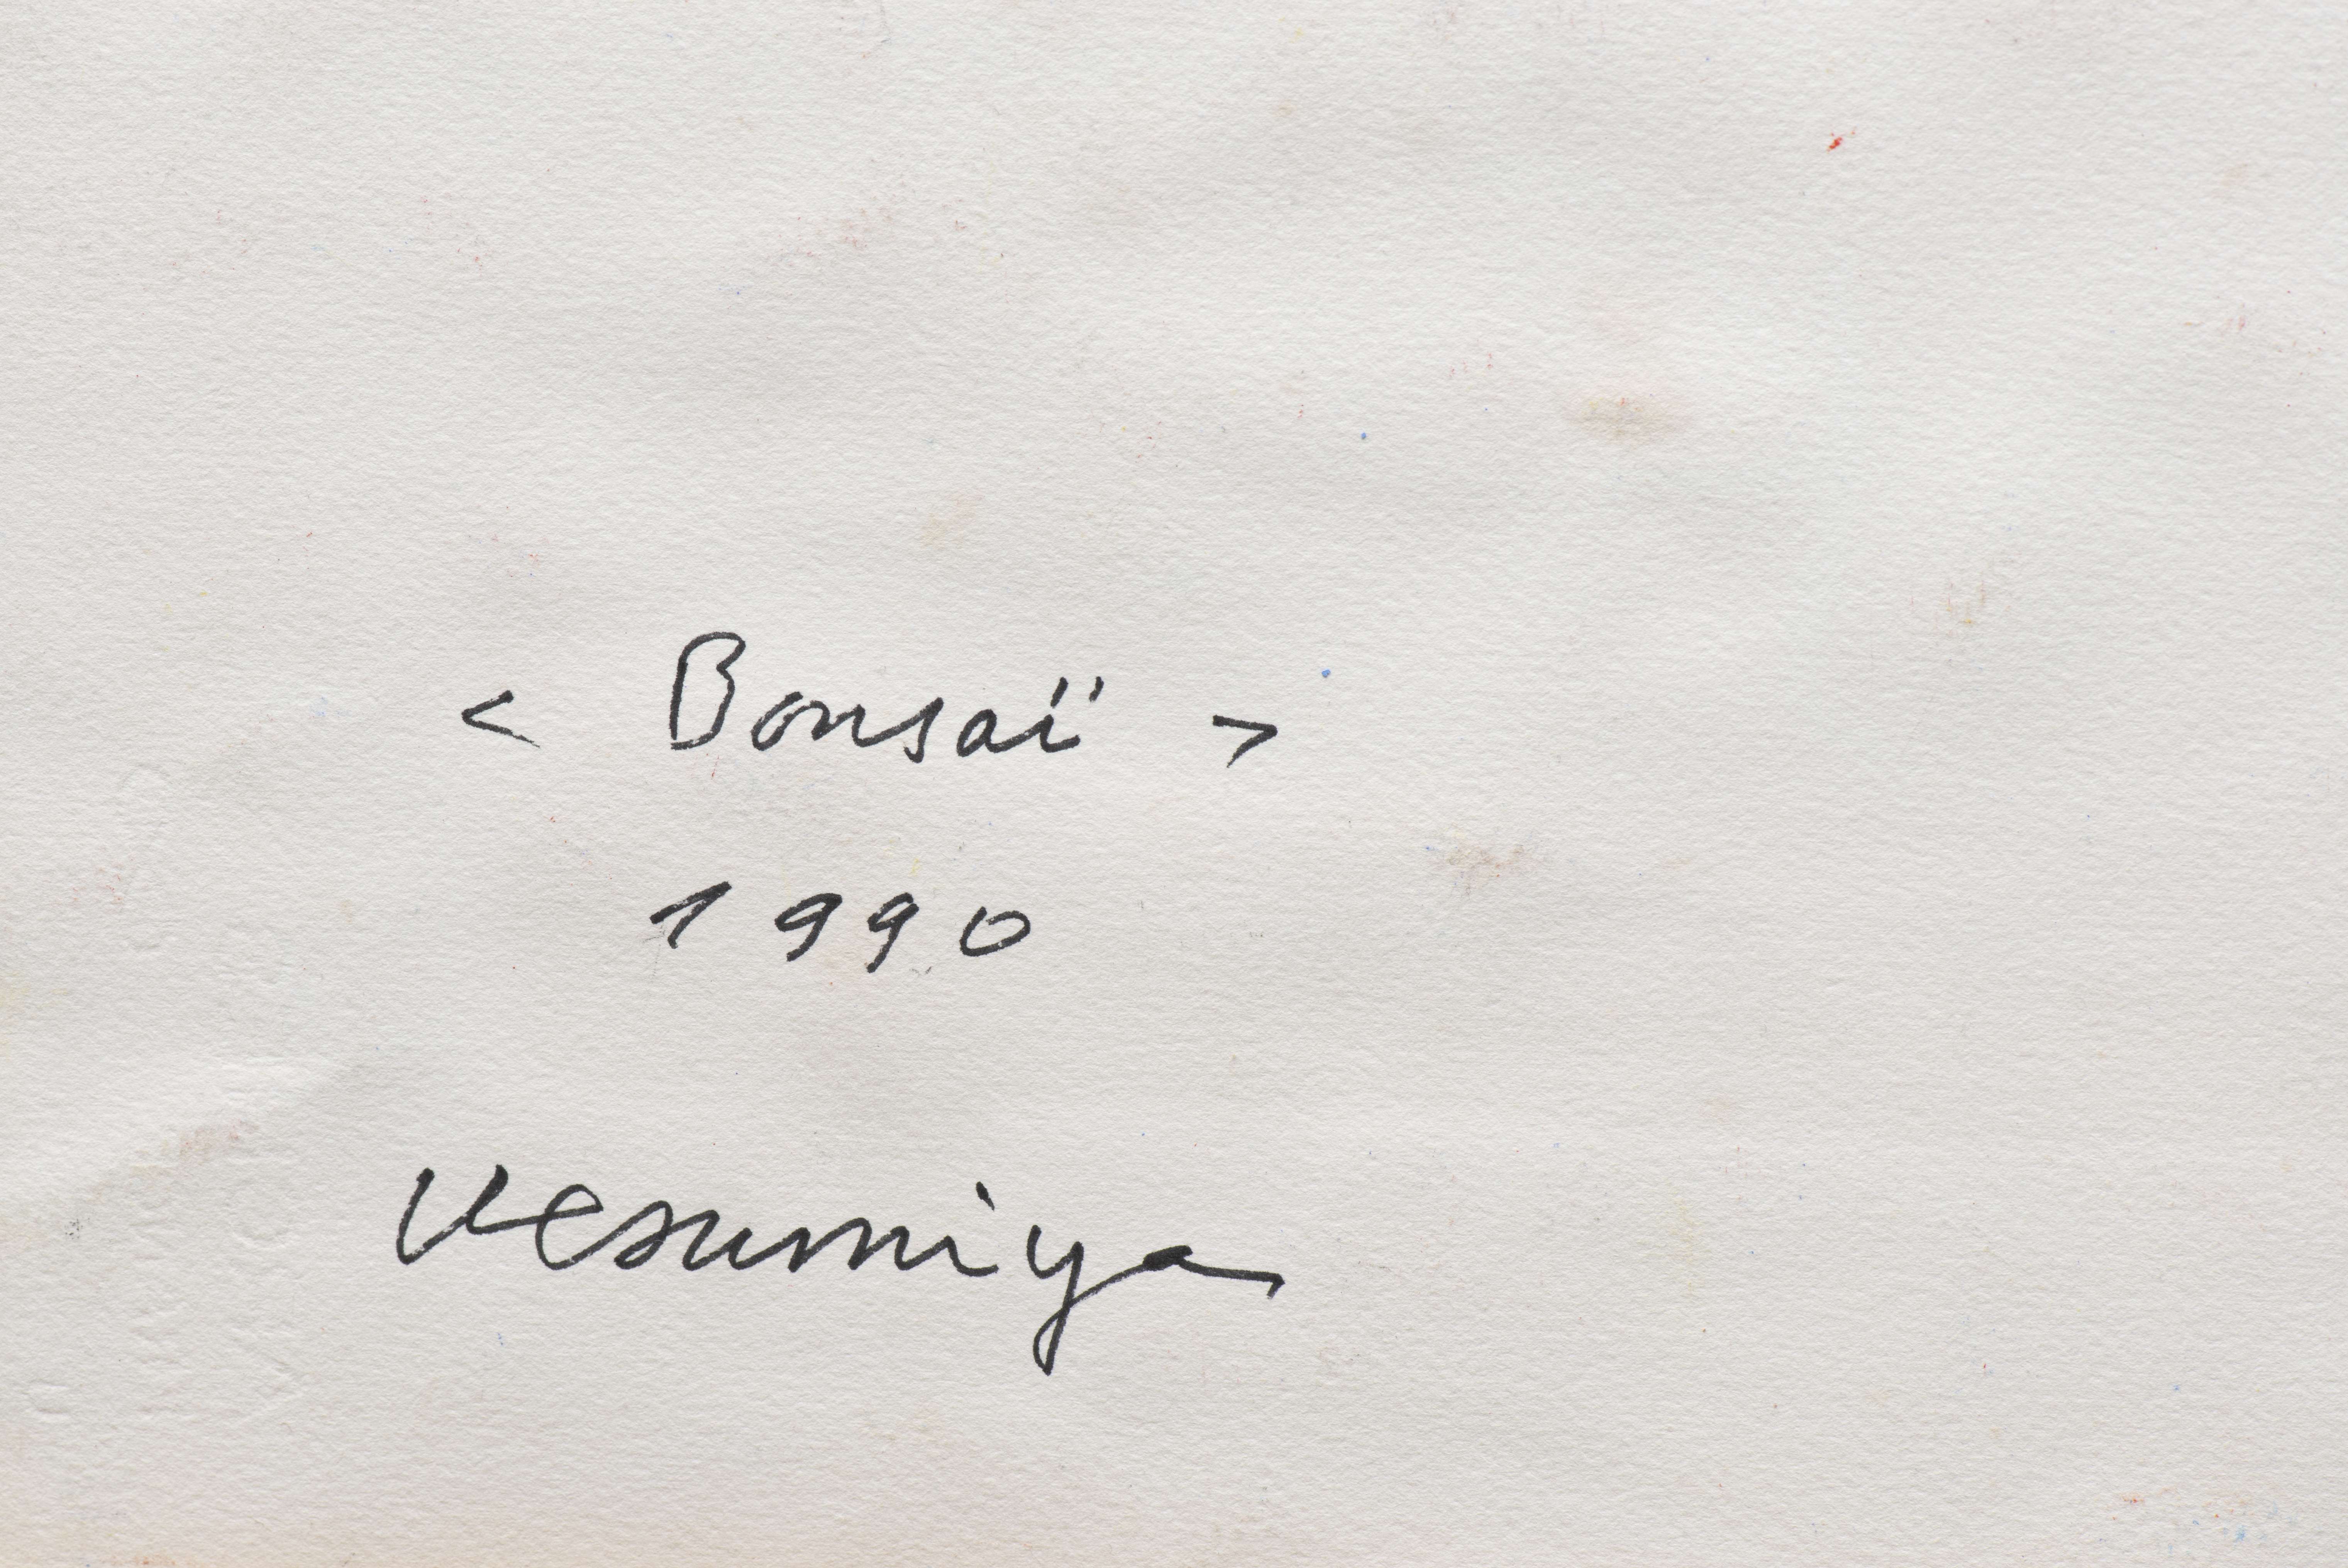 < Bonsaï >
1990
Uesumiya